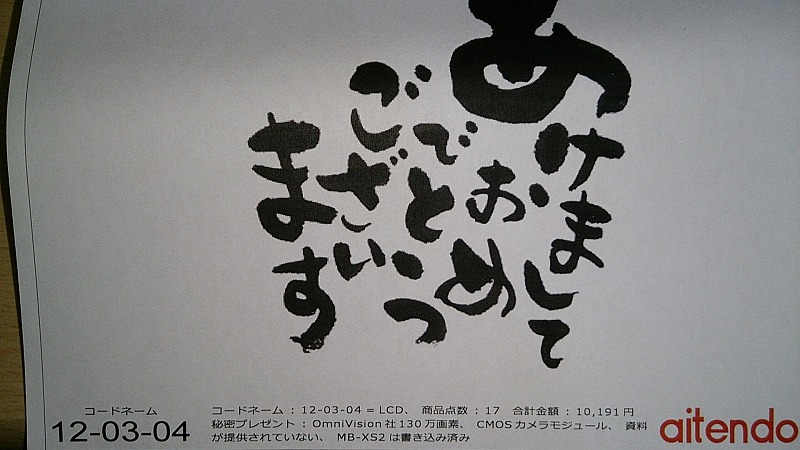 あけまして
おめでとう
ございます
コードネーム
12-03-04
コードネーム : 12-03-04 = LCD、 商品点数 : 17 合計金額 : 10,191円
秘密プレゼント : OmniVision社130万画素、 CMOSカメラモジュール、 資料
が提供されていない、 MB-XS2 は書き込み済み
aitendo